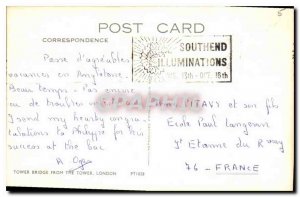 5
POST CARD
CORRESPONDENCE
SOUTHEND
ILLUMINATIONS
AUG. 13th - OCT. 16th
Passe d'agréables
vacances en Angleterre.
Beau temps. Pas encore
eu de troubles
I send my hearty congra-
tulations to Philippe for his
success at the bac
et son fils
Ecole Paul Langevin
St Etienne du R vray
76 - FRANCE
TOWER BRIDGE FROM THE TOWER, LONDON